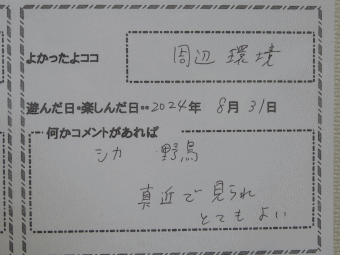 よかったよココ 周辺環境
遊んだ日・楽しんだ日・・2024年 8月 31日
何かコメントがあれば
シカ 野鳥
真近で見られ
とてもよい